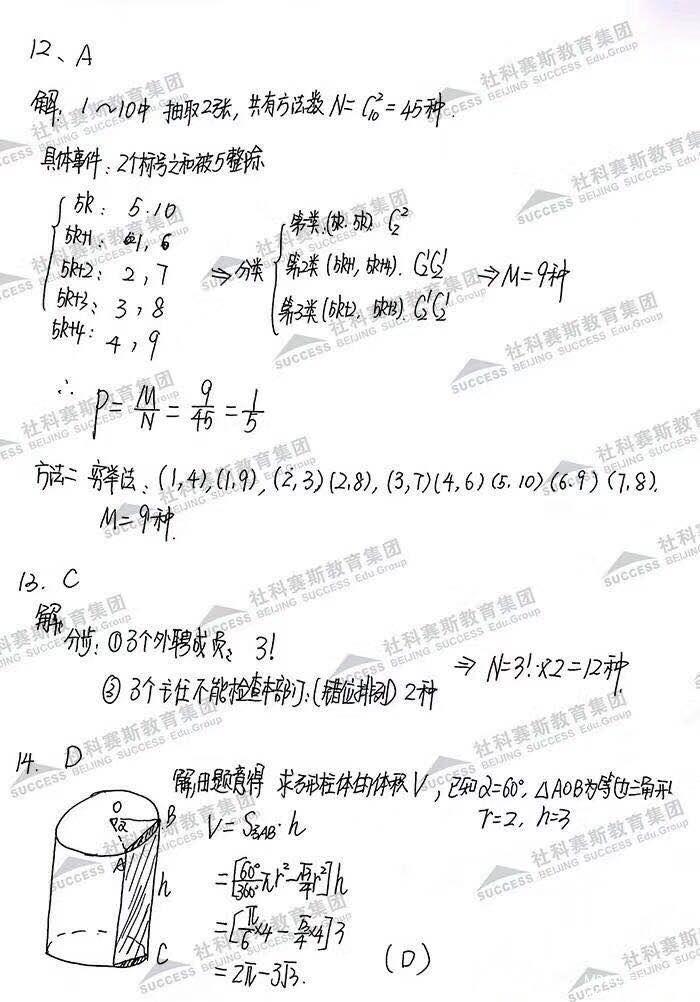 12、A
解: 1～10中 抽取2张, 共有方法数 N= C₁₀² = 45种.
具体事件: 2个标号之和被5整除
5k: 5.10
5k+1: 1, 6
5k+2: 2, 7
5k+3: 3, 8
5k+4: 4, 9
⇒ 分类
第1类: (5k. 5k) C₂²
第2类 (5k+1, 5k+4). C₂¹C₂¹
第3类 (5k+2, 5k+3). C₂¹C₂¹
⇒ M= 9种
∴ P= M/N = 9/45 = 1/5
方法二 穷举法: (1,4), (1,9), (2,3) (2,8), (3,7) (4,6) (5.10) (6.9) (7,8).
M= 9种.
13. C
解: 分步: ① 3个外聘成员: 3!
② 3个主任不能检查本部门: (错位排列) 2种
⇒ N=3! ×2=12种.
14. D
解:由题意得 求弓形柱体的体积V, 已知 α=60°, △AOB为等边三角形
r=2, h=3
V= S弓AB · h
= [60°/360° πr² − √3/4 r²] h
= [π/6 ×4 − √3/4 ×4] 3
= 2π−3√3.
(D)
O
α
A
B
h
C
社科赛斯教育集团
SUCCESS BEIJING SUCCESS Edu.Group